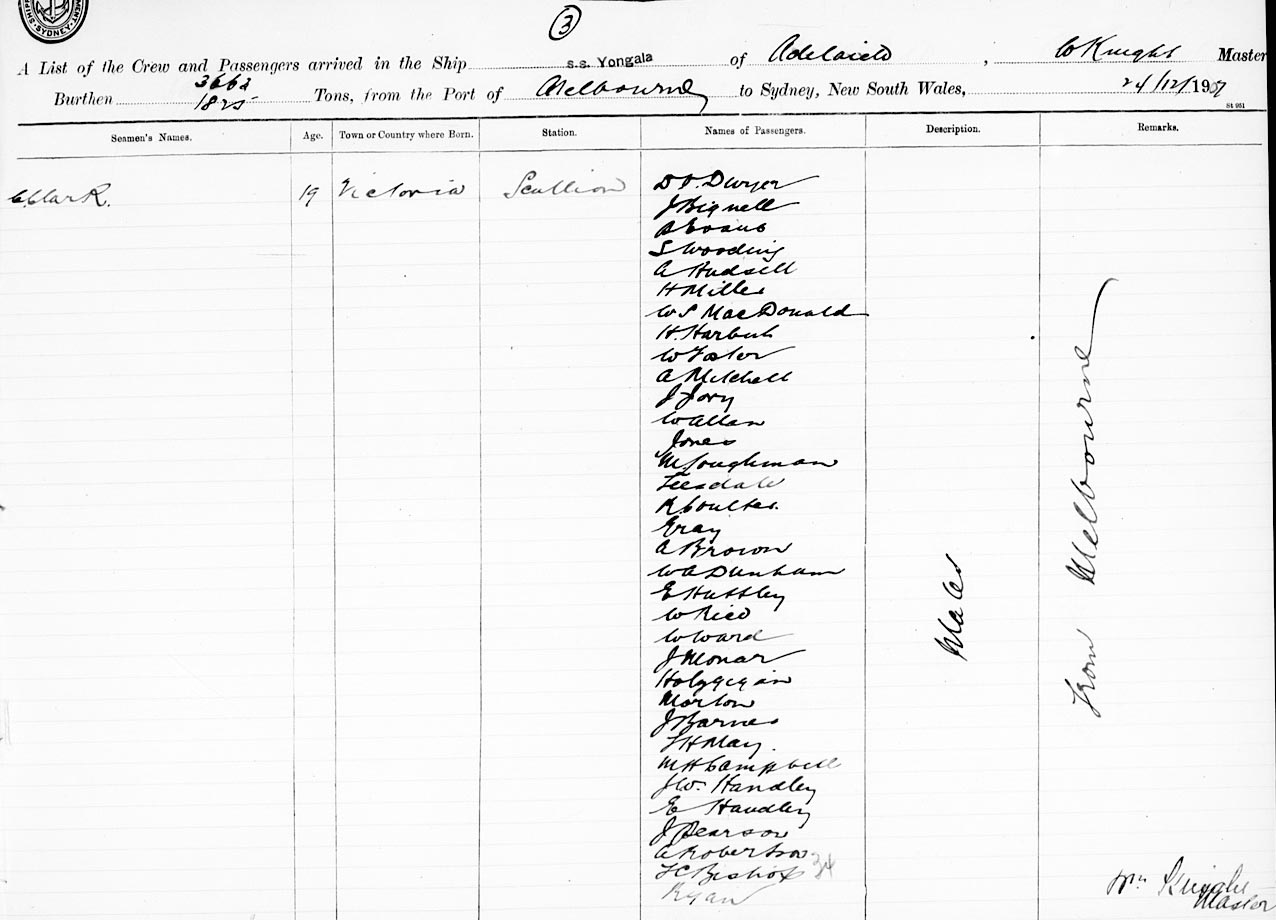 SYDNEY
3
A List of the Crew and Passengers arrived in the Ship s.s. Yongala of Adelaide, W Knight Master
Burthen 3663 1825 Tons, from the Port of Melbourne to Sydney, New South Wales, 24/12/1907
St 951
Seamen's Names. Age. Town or Country where Born. Station. Names of Passengers. Description. Remarks.
C. Clark. 19 Victoria Scullion
Dwyer
J Bignell
Evans
S Wooding
A Hudsell
H Miller
W S MacDonald
H. Harbut
W Foster
A Mitchell
J Jory
W Allan
Jones
Loughman
Teesdale
R Coulter.
Gray
A Brown
W A Dunham
E Huttley
W Rice
W Ward
J Monar
Holygigan
Morton
J Barnes
H May.
M H Campbell
J W. Handley
E Handley
J Pearson
A Robertson
Bishop 34
Ryan
Males
From Melbourne
Wm Knight
Master